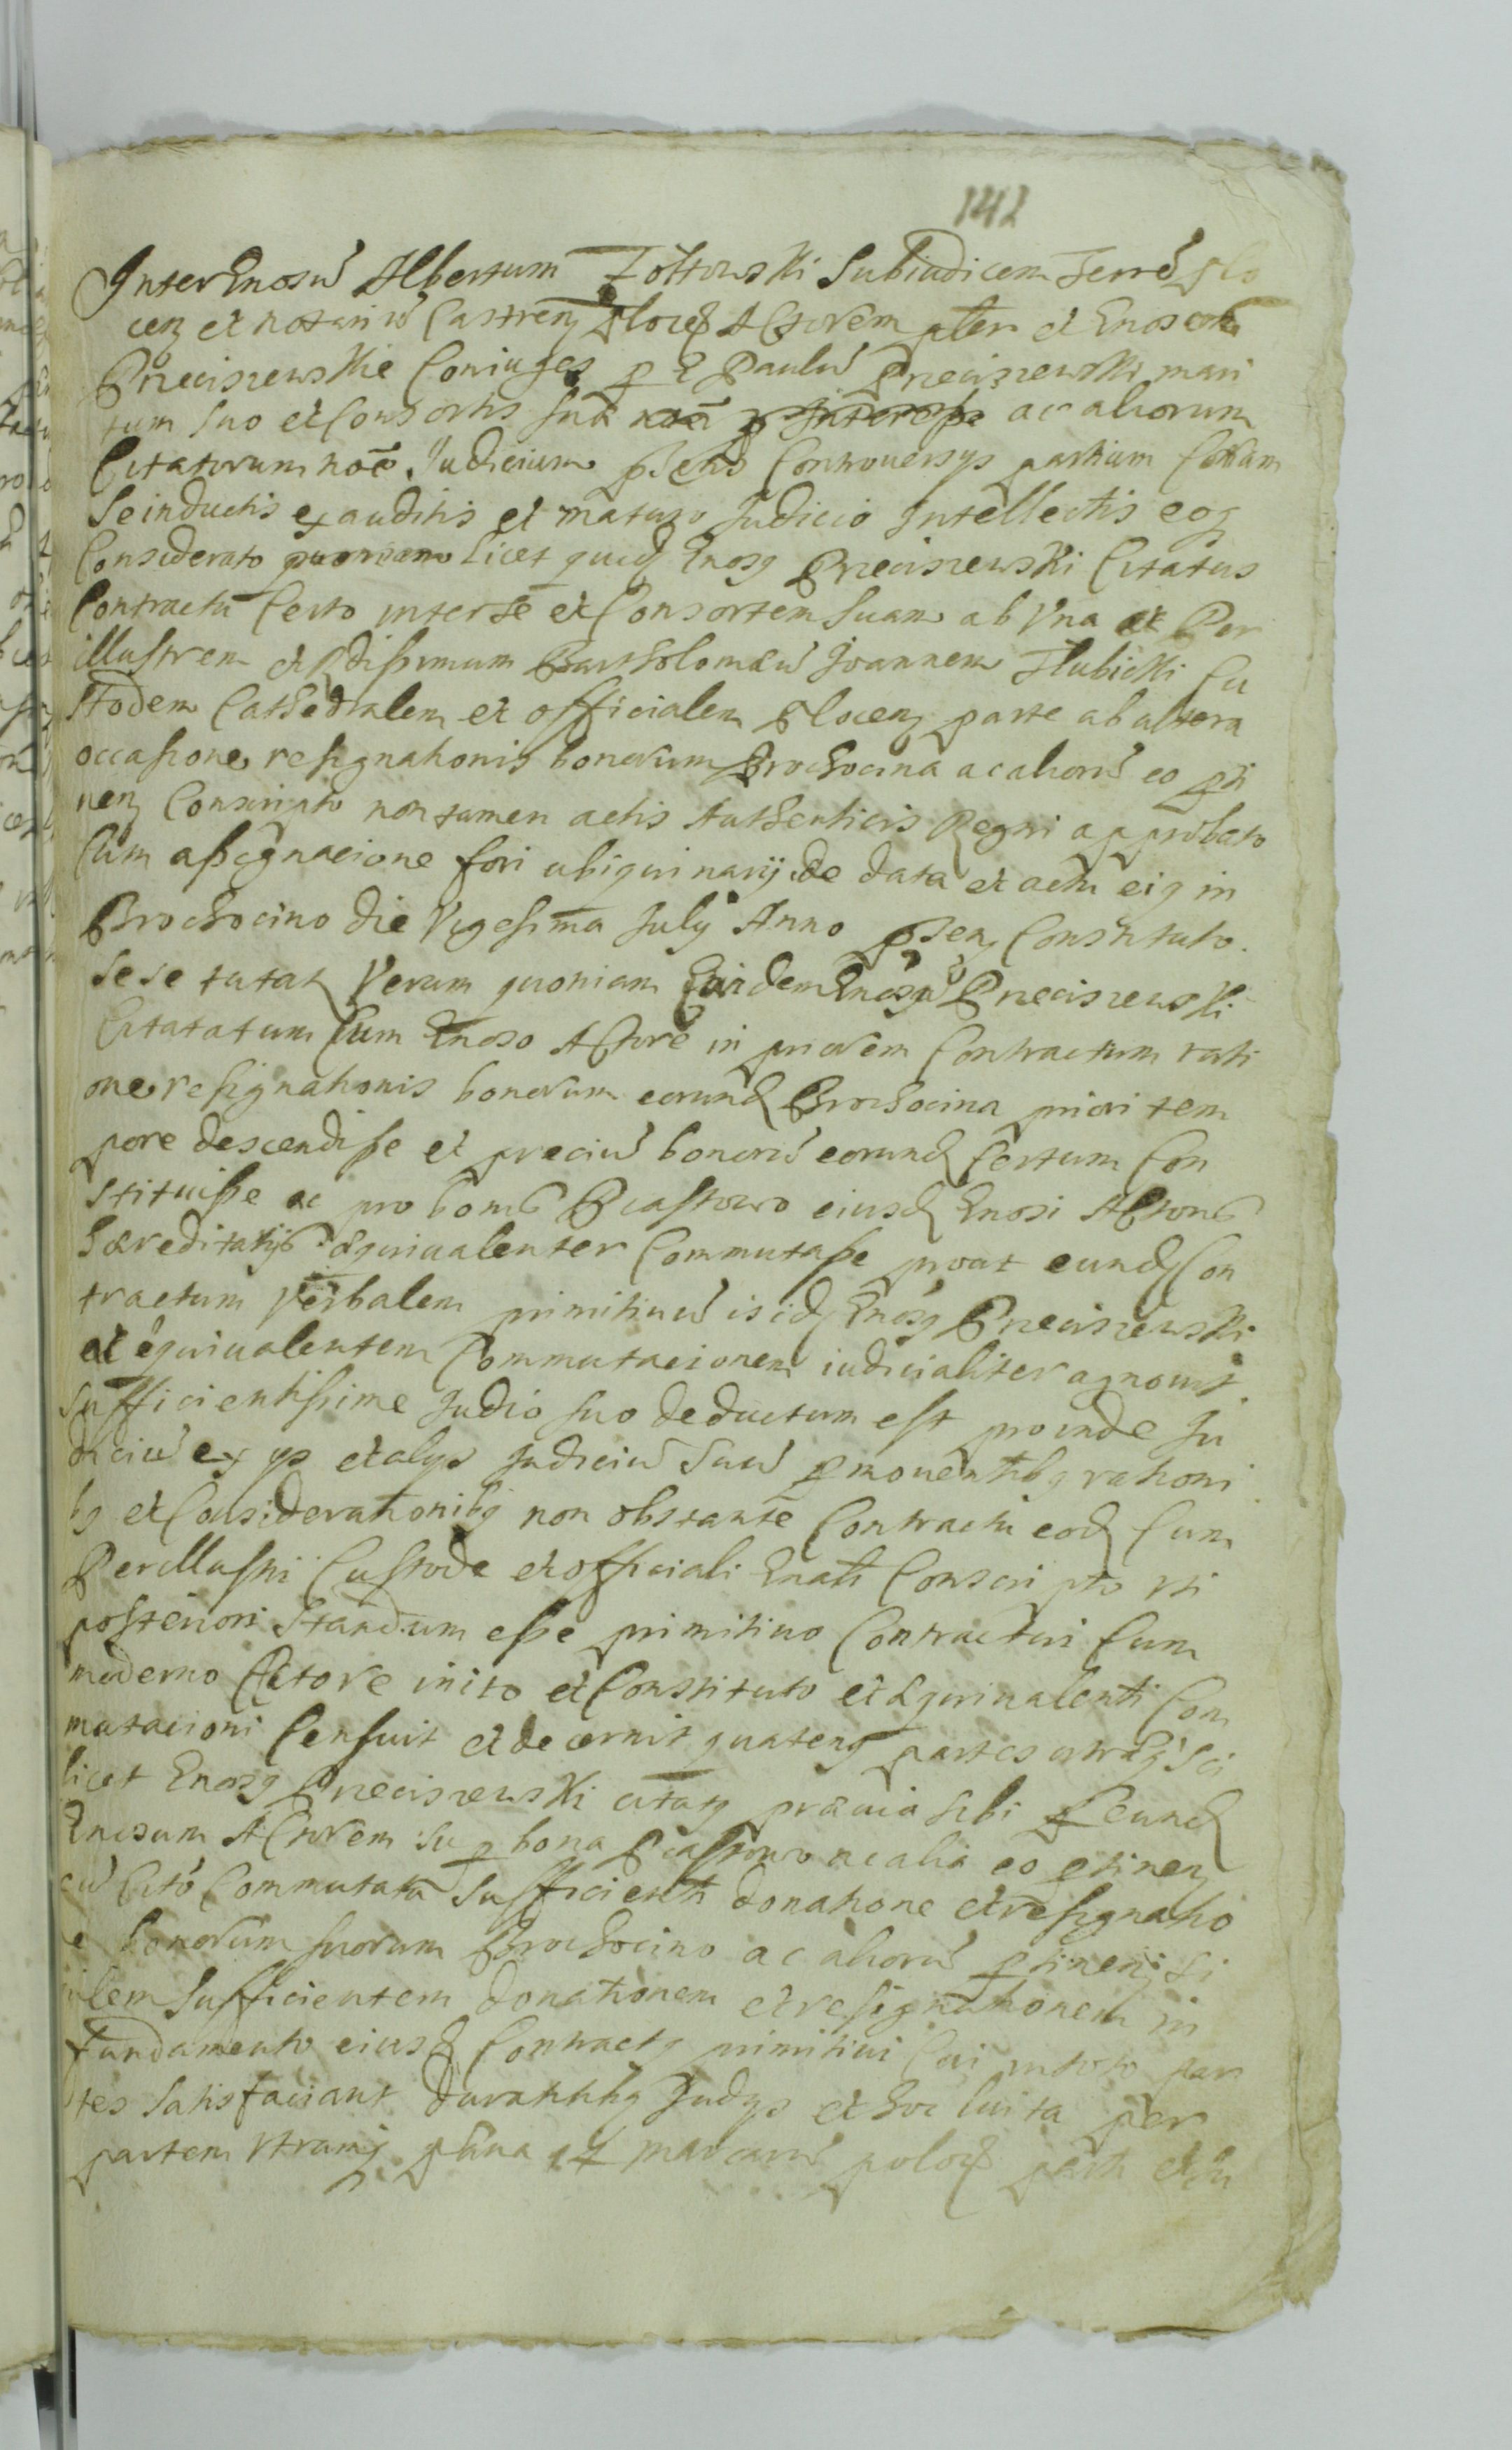 142
Inter Gnosũ Albertum Żółtowski Subiudicem Terrẽ Plo
cen et notariũ Castren Plocen Actorem ab et Gnosos
Preciszewskie Coniuges per G Paulũ Preciszewski mari
tum suo et Consortis suæ noĩe ac aliorum
Citatorum noĩe. Judicium pñs Controuersys partium Coram
Se inductis exauditis et maturo Judicio Intellectis eoq
Considerato quoniam licet quid Gnosg Preciszewski Citatus
Contractu Certo inter Se et Consortem Suam ab Vna et Per
illustrem et Rdissimum Bartholomæũ Joannem Hubicki Cu
stodem Cathedralem et officialem Plocen parte ab altera
occasione resignationis bonorum Brochocina ac aliorũ eo pti
nen Conscripto non tamen actis Authenticis Regni approbato
Cum assignacione fori ubiquinarij de data et actu eig in
Brochocino die Vigesima July Anno pñen Constituto.
Sese tutat Verum quoniam Eundem Gnosũ Preciszewski
Citatatum Cum Gnoso Actore in priorem Contractum rati
one resignationis bonorum eorund Brochocina priori tem
pore descendisse et preciũ bonorũ eorund Certum Con
stituisse ac pro bonis Piastowo eiusd Gnosi Actoris
hæreditatijs æquiualenter Commutasse prout eund Con
tractum Verbalem primitiuũ is id Gnosg Preciszewski
et equiualentem Commutacionem iudicialiter agnouit.
Sufficientissime Judio suo deductum est proinde Ju
diciũ ex ys et alys Judiciũ Suũ pmouentibg rationi
bg et Considerationibg non obstante Contractu eod Cum
Perillustri Custode et officiali Gnati Conscripto uti
posteriori Standum esse primitiuo Contractui Cum
moderno Actore inito et Constituto et æquiualenti Com
mutacioni Censuit et decernit quateng partes utraeq Sci
licet Gnosg Preciszewski citatg præuia sibi p eund
Gnosum Actorem sup bona Piastowo ac alia eo ptinen
cũ Citó Commutata Sufficienti donatione et resignatio
e bonorum suorum Brochocino ac aliorũ ptinen Si
ilem Sufficientem donationem et resignationem in
fundamento eiusd Contractg primitiui Cui in toto par
tes Satisfaciant durantibg Judys et hoc luita per
partem Vtramq pæna 14 marcarũ polon parti et Ju